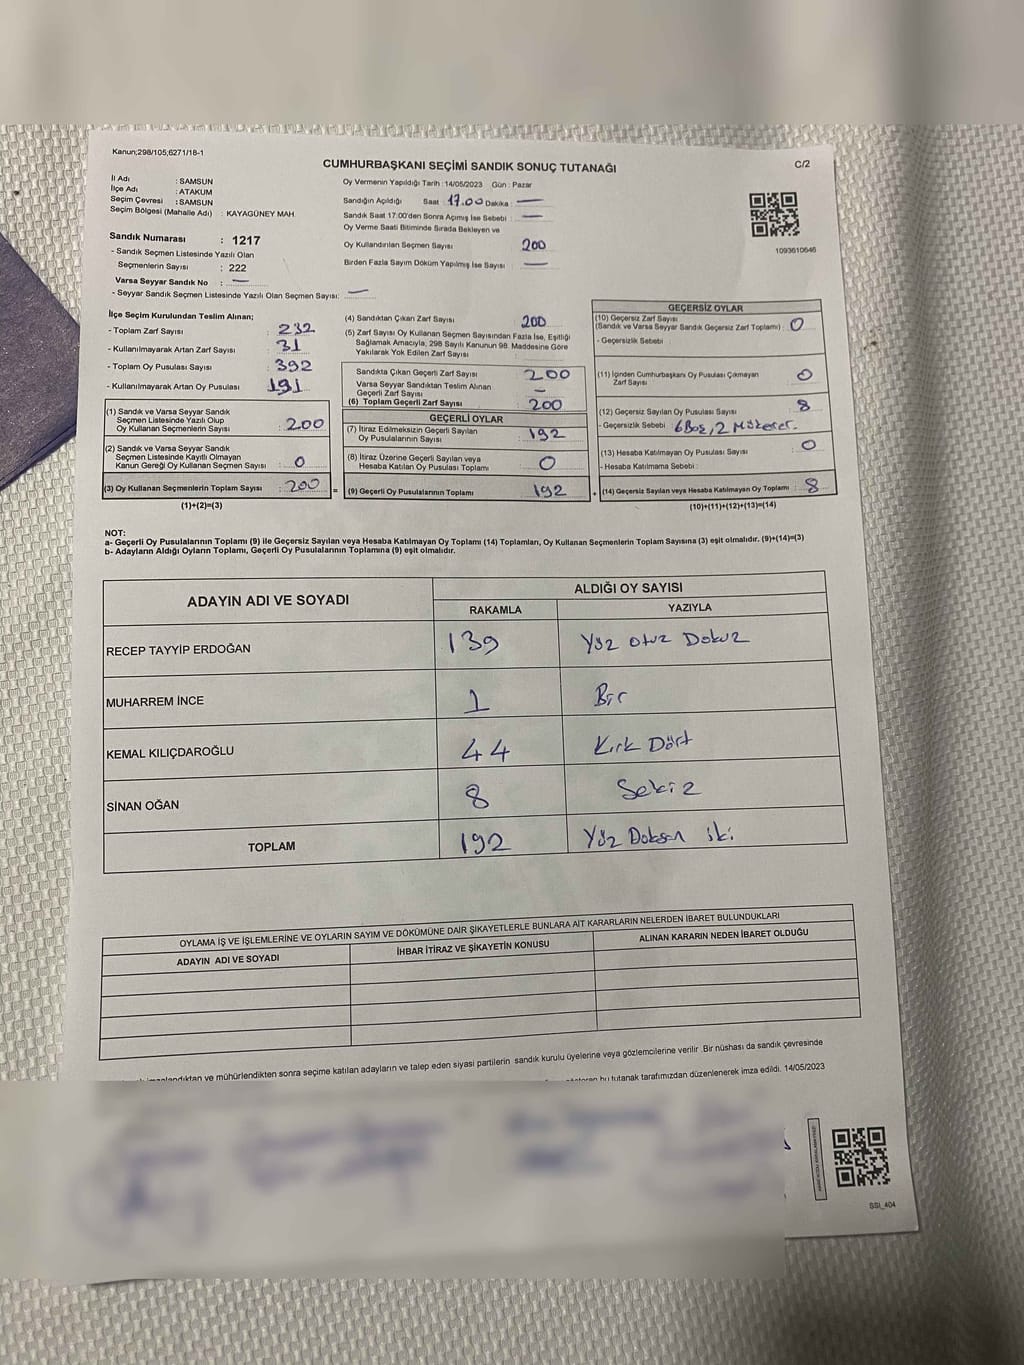 Kanun;298/105,6271/18-1
CUMHURBAŞKANI SEÇİMİ SANDIK SONUÇ TUTANAĞI
C/2
İl Adı : SAMSUN
İlçe Adı : ATAKUM
Seçim Çevresi : SAMSUN
Seçim Bölgesi (Mahalle Adı) : KAYAGÜNEY MAH.
Sandık Numarası : 1217
- Sandık Seçmen Listesinde Yazılı Olan
Seçmenlerin Sayısı : 222
Varsa Seyyar Sandık No : —
- Seyyar Sandık Seçmen Listesinde Yazılı Olan Seçmen Sayısı: —
Oy Vermenin Yapıldığı Tarih :14/05/2023 Gün : Pazar
Sandığın Açıldığı Saat : 17.00 Dakika : —
Sandık Saat 17:00'den Sonra Açımış İse Sebebi : —
Oy Verme Saati Bitiminde Sırada Bekleyen ve
Oy Kullandırılan Seçmen Sayısı 200
Birden Fazla Sayım Döküm Yapılmış İse Sayısı : —
1093610646
İlçe Seçim Kurulundan Teslim Alınan;
- Toplam Zarf Sayısı : 232
- Kullanılmayarak Artan Zarf Sayısı : 31
- Toplam Oy Pusulası Sayısı : 392
- Kullanılmayarak Artan Oy Pusulası : 191
(1) Sandık ve Varsa Seyyar Sandık
Seçmen Listesinde Yazılı Olup
Oy Kullanan Seçmenlerin Sayısı : 200
(2) Sandık ve Varsa Seyyar Sandık
Seçmen Listesinde Kayıtlı Olmayan
Kanun Gereği Oy Kullanan Seçmen Sayısı : 0
(3) Oy Kullanan Seçmenlerin Toplam Sayısı : 200
(1)+(2)=(3)
(4) Sandıktan Çıkan Zarf Sayısı : 200
(5) Zarf Sayısı Oy Kullanan Seçmen Sayısından Fazla İse, Eşitliği
Sağlamak Amacıyla, 298 Sayılı Kanunun 98. Maddesine Göre
Yakılarak Yok Edilen Zarf Sayısı :
Sandıkta Çıkan Geçerli Zarf Sayısı : 200
Varsa Seyyar Sandıktan Teslim Alınan
Geçerli Zarf Sayısı : —
(6) Toplam Geçerli Zarf Sayısı : 200
GEÇERLİ OYLAR
(7) İtiraz Edilmeksizin Geçerli Sayılan
Oy Pusulalarının Sayısı : 192
(8) İtiraz Üzerine Geçerli Sayılan veya
Hesaba Katılan Oy Pusulası Toplamı : 0
=
(9) Geçerli Oy Pusulalarının Toplamı : 192
+
GEÇERSİZ OYLAR
(10) Geçersiz Zarf Sayısı
(Sandık ve Varsa Seyyar Sandık Geçersiz Zarf Toplamı) : 0
- Geçersizlik Sebebi :
(11) İçinden Cumhurbaşkanı Oy Pusulası Çıkmayan
Zarf Sayısı : 0
(12) Geçersiz Sayılan Oy Pusulası Sayısı : 8
- Geçersizlik Sebebi : 6 Boş, 2 Mükerrer.
(13) Hesaba Katılmayan Oy Pusulası Sayısı : 0
- Hesaba Katılmama Sebebi :
(14) Geçersiz Sayılan veya Hesaba Katılmayan Oy Toplamı : 8
(10)+(11)+(12)+(13)=(14)
NOT:
a- Geçerli Oy Pusulalarının Toplamı (9) ile Geçersiz Sayılan veya Hesaba Katılmayan Oy Toplamı (14) Toplamları, Oy Kullanan Seçmenlerin Toplam Sayısına (3) eşit olmalıdır. (9)+(14)=(3)
b- Adayların Aldığı Oyların Toplamı, Geçerli Oy Pusulalarının Toplamına (9) eşit olmalıdır.
ADAYIN ADI VE SOYADI
ALDIĞI OY SAYISI
RAKAMLA YAZIYLA
RECEP TAYYİP ERDOĞAN 139 Yüz otuz Dokuz
MUHARREM İNCE 1 Bir
KEMAL KILIÇDAROĞLU 44 Kırk Dört
SİNAN OĞAN 8 Sekiz
TOPLAM 192 Yüz Doksan iki
OYLAMA İŞ VE İŞLEMLERİNE VE OYLARIN SAYIM VE DÖKÜMÜNE DAİR ŞİKAYETLERLE BUNLARA AİT KARARLARIN NELERDEN İBARET BULUNDUKLARI
ADAYIN ADI VE SOYADI İHBAR İTİRAZ VE ŞİKAYETİN KONUSU ALINAN KARARIN NEDEN İBARET OLDUĞU
ve mühürlendikten sonra seçime katılan adayların ve talep eden siyasi partilerin sandık kurulu üyelerine veya gözlemcilerine verilir .Bir nüshası da sandık çevresinde
bu tutanak tarafımızdan düzenlenerek imza edildi. 14/05/2023
SSI_404